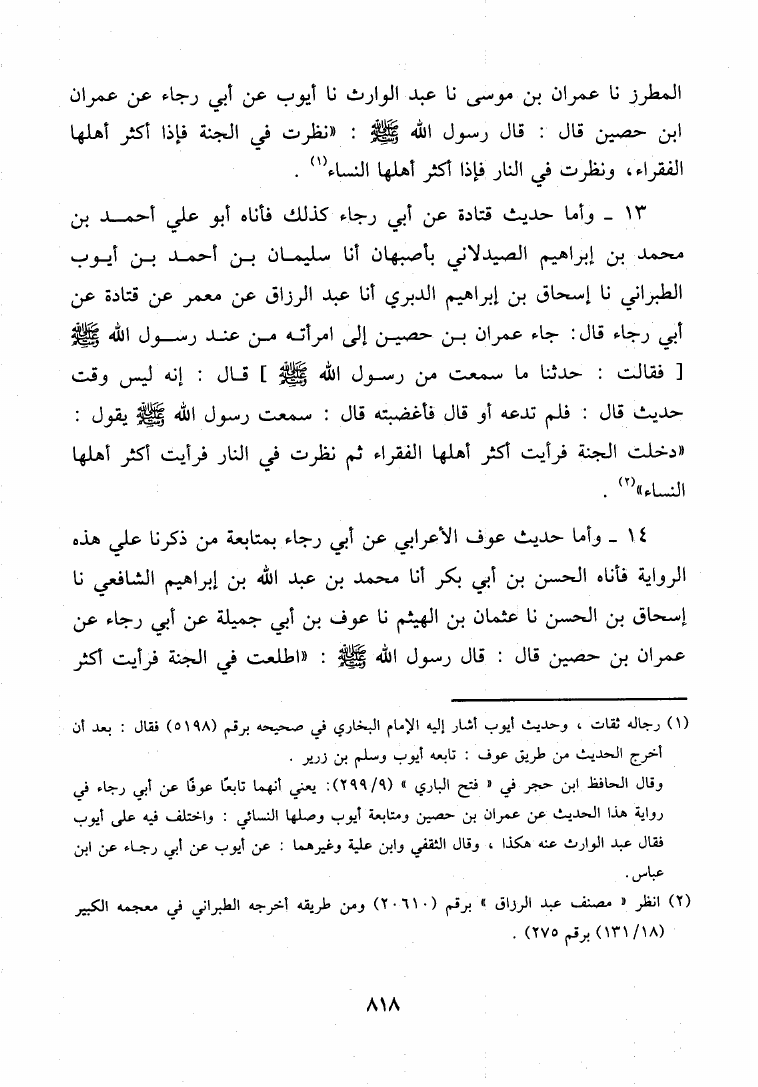 المطرز نا عمران بن موسى نا عبد الوارث نا أيوب عن أبي رجاء عن عمران
ابن حصين قال : قال رسول الله ﷺ : «نظرت في الجنة فإذا أكثر أهلها
الفقراء، ونظرت في النار فإذا أكثر أهلها النساء(١) .
١٣ ـ وأما حديث قتادة عن أبي رجاء كذلك فأناه أبو علي أحمـد بن
محمد بن إبراهيم الصيدلاني بأصبهان أنا سليمـان بـن أحمـد بـن أيـوب
الطبراني نا إسحاق بن إبراهيم الدبري أنا عبد الرزاق عن معمر عن قتادة عن
أبي رجاء قال: جاء عمران بـن حصيـن إلى امرأتـه مـن عنـد رسـول الله ﷺ
[ فقالت : حدثنا ما سمعت من رسـول الله ﷺ ] قـال : إنه ليس وقت
حديث قال : فلم تدعه أو قال فأغضبته قال : سمعت رسول الله ﷺ يقول :
«دخلت الجنة فرأيت أكثر أهلها الفقراء ثم نظرت في النار فرأيت أكثر أهلها
النساء»(٢) .
١٤ ـ وأما حديث عوف الأعرابي عن أبي رجاء بمتابعة من ذكرنا علي هذه
الرواية فأناه الحسن بن أبي بكر أنا محمد بن عبد الله بن إبراهيم الشافعي نا
إسحاق بن الحسن نا عثمان بن الهيثم نا عوف بن أبي جميلة عن أبي رجاء عن
عمران بن حصين قال : قال رسول الله ﷺ : «اطلعت في الجنة فرأيت أكثر
(١) رجاله ثقات ، وحديث أيوب أشار إليه الإمام البخاري في صحيحه برقم (٥١٩٨) فقال : بعد أن
أخرج الحديث من طريق عوف : تابعه أيوب وسلم بن زرير .
وقال الحافظ ابن حجر في « فتح الباري » (٢٩٩/٩): يعني أنهما تابعًا عوفًا عن أبي رجاء في
رواية هذا الحديث عن عمران بن حصين ومتابعة أيوب وصلها النسائي : واختلف فيه على أيوب
فقال عبد الوارث عنه هكذا ، وقال الثقفي وابن علية وغيرهما : عن أيوب عن أبي رجـاء عن ابن
عباس.
(٢) انظر « مصنف عبد الرزاق » برقم (٢٠٦١٠) ومن طريقه أخرجه الطبراني في معجمه الكبير
(١٣١/١٨) برقم ٢٧٥) .
٨١٨